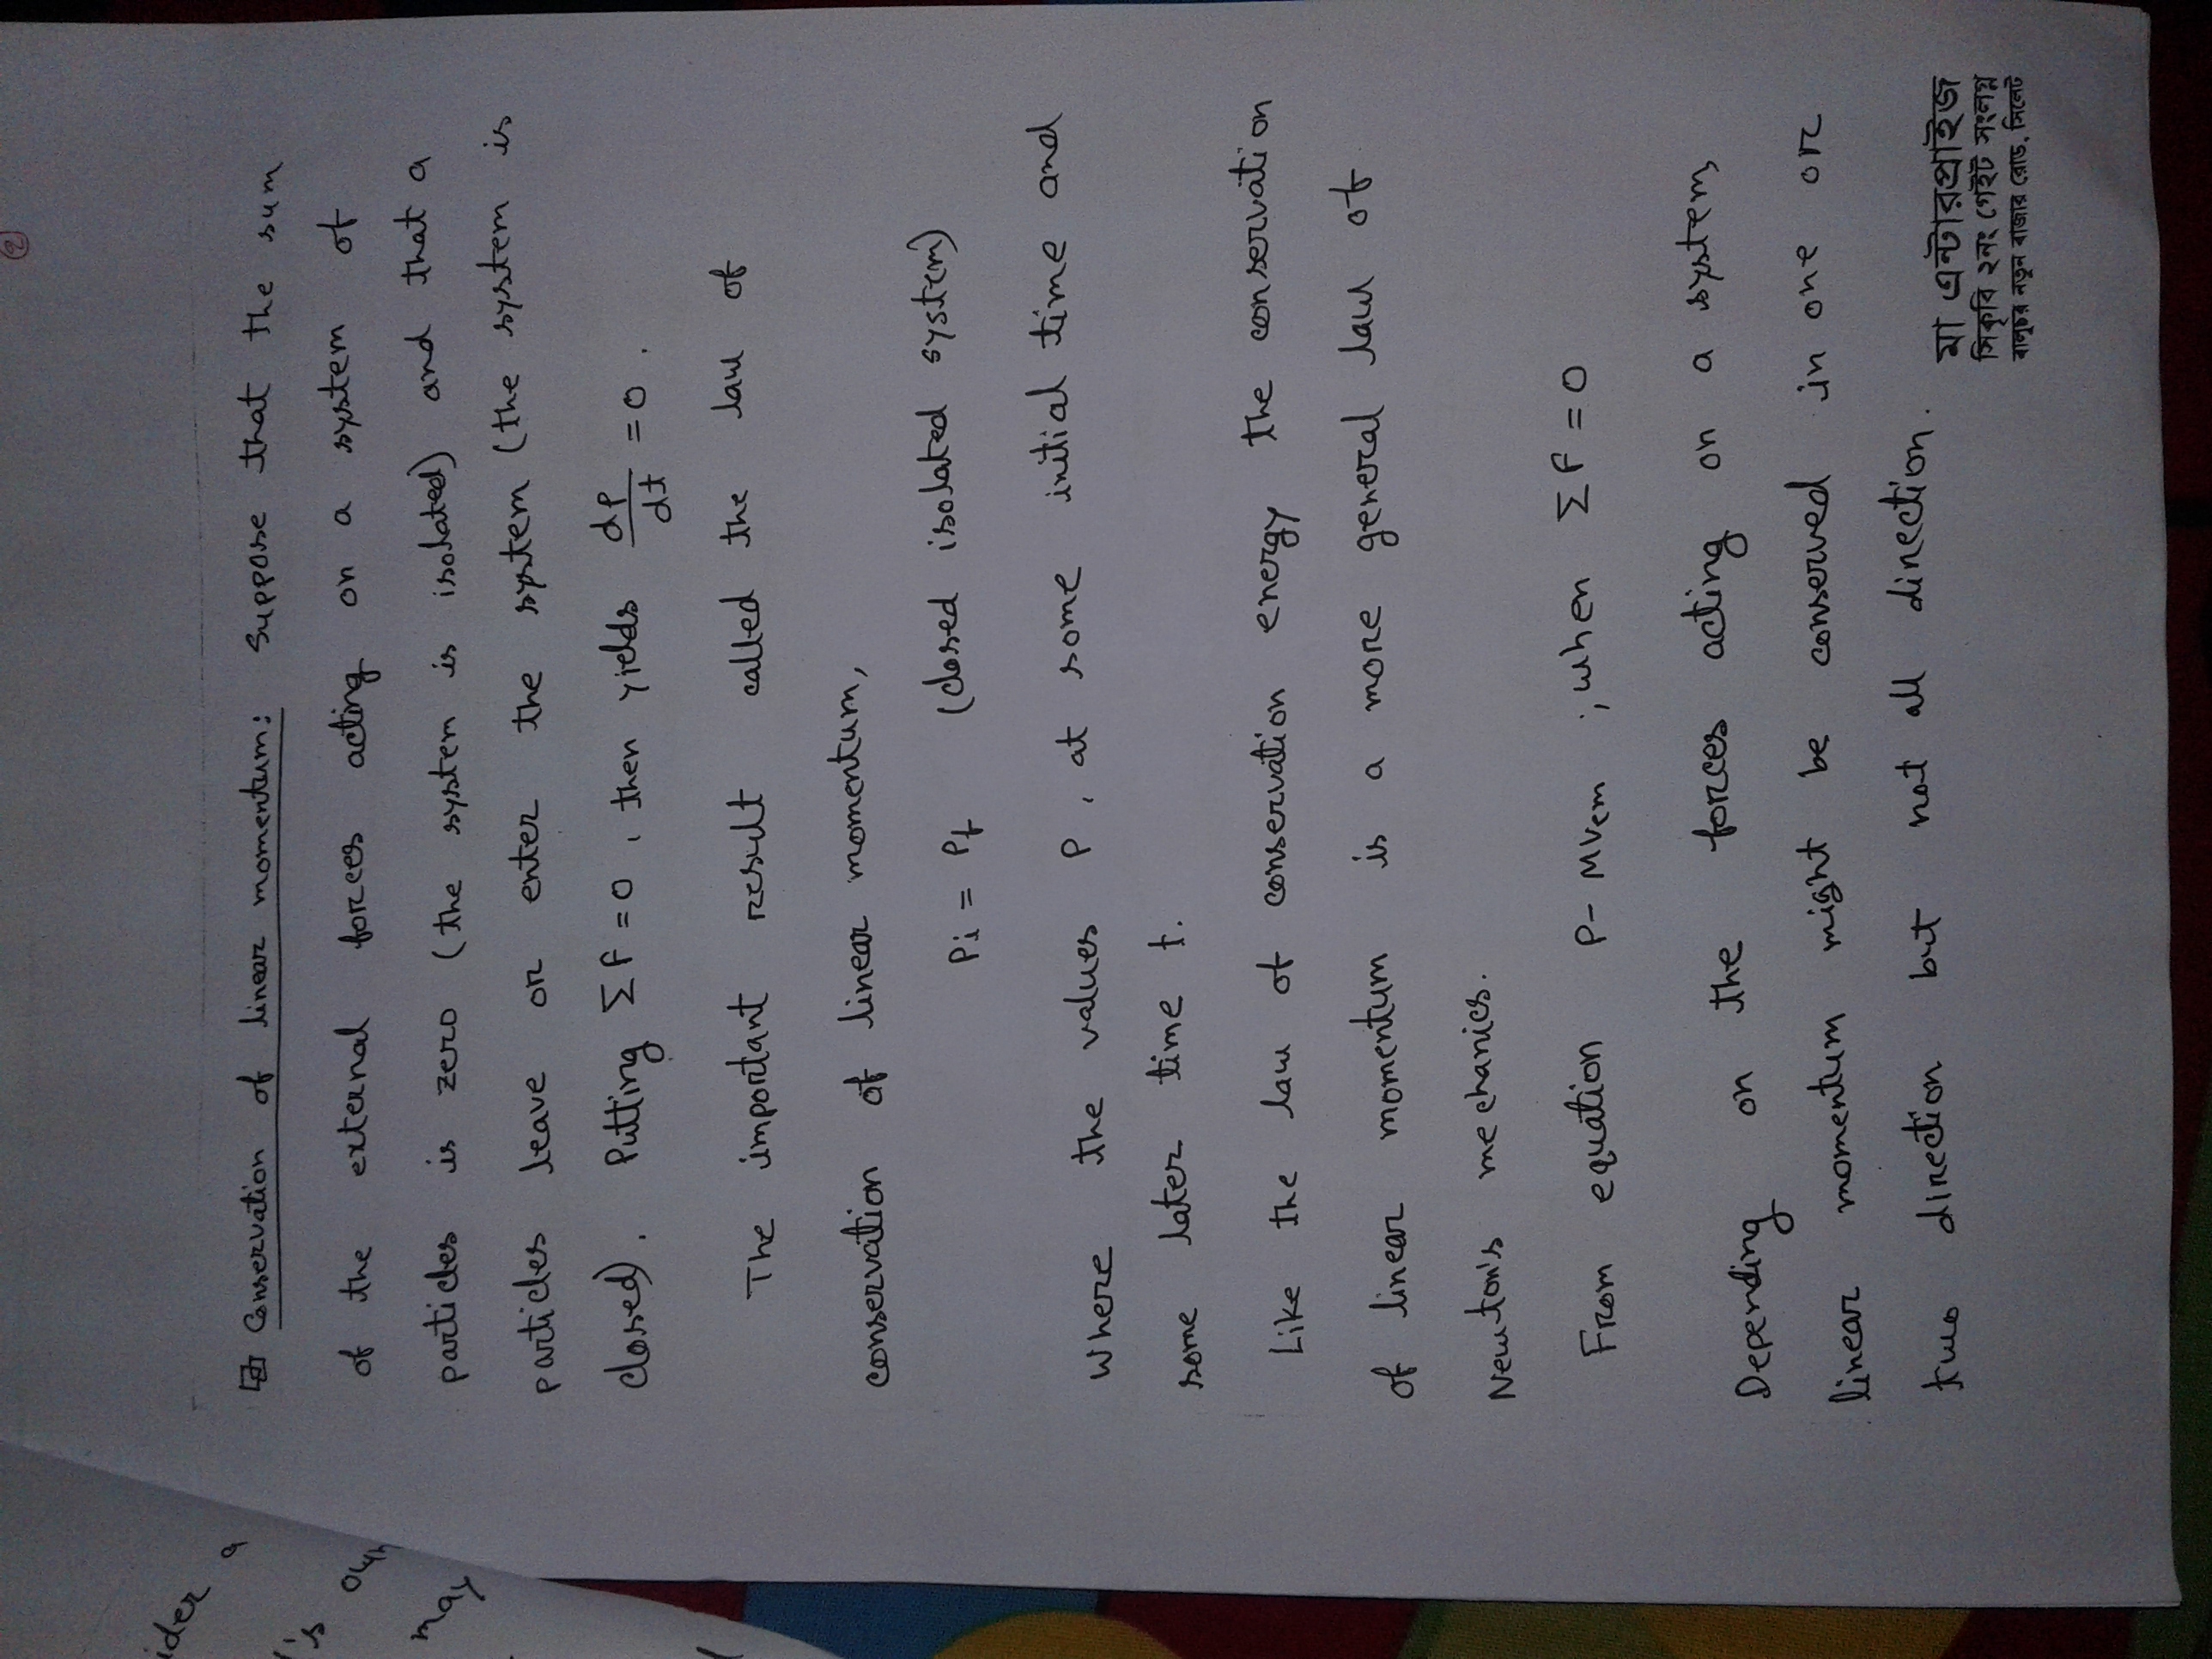 2
ider a
's own
may
Conservation of linear momentum: Suppose that the sum
of the external forces acting on a system of
particles is zero (the system is isolated) and that a
particles leave or enter the system (the system is
closed). Putting ΣF = 0, then yields dp/dt = 0.
The important result called the law of
conservation of linear momentum,
Pi = Pf (closed isolated system)
Where the values P, at some initial time and
some later time t.
Like the law of conservation energy the conservation
of linear momentum is a more general law of
Newton's mechanics.
From equation P- MVcm ; when ΣF = 0
Depending on the forces acting on a system,
linear momentum might be conserved in one or
two direction but not all direction.
মা এন্টারপ্রাইজ
সিকৃবি ২নং গেইট সংলগ্ন
বালুচর নতুন বাজার রোড, সিলেট